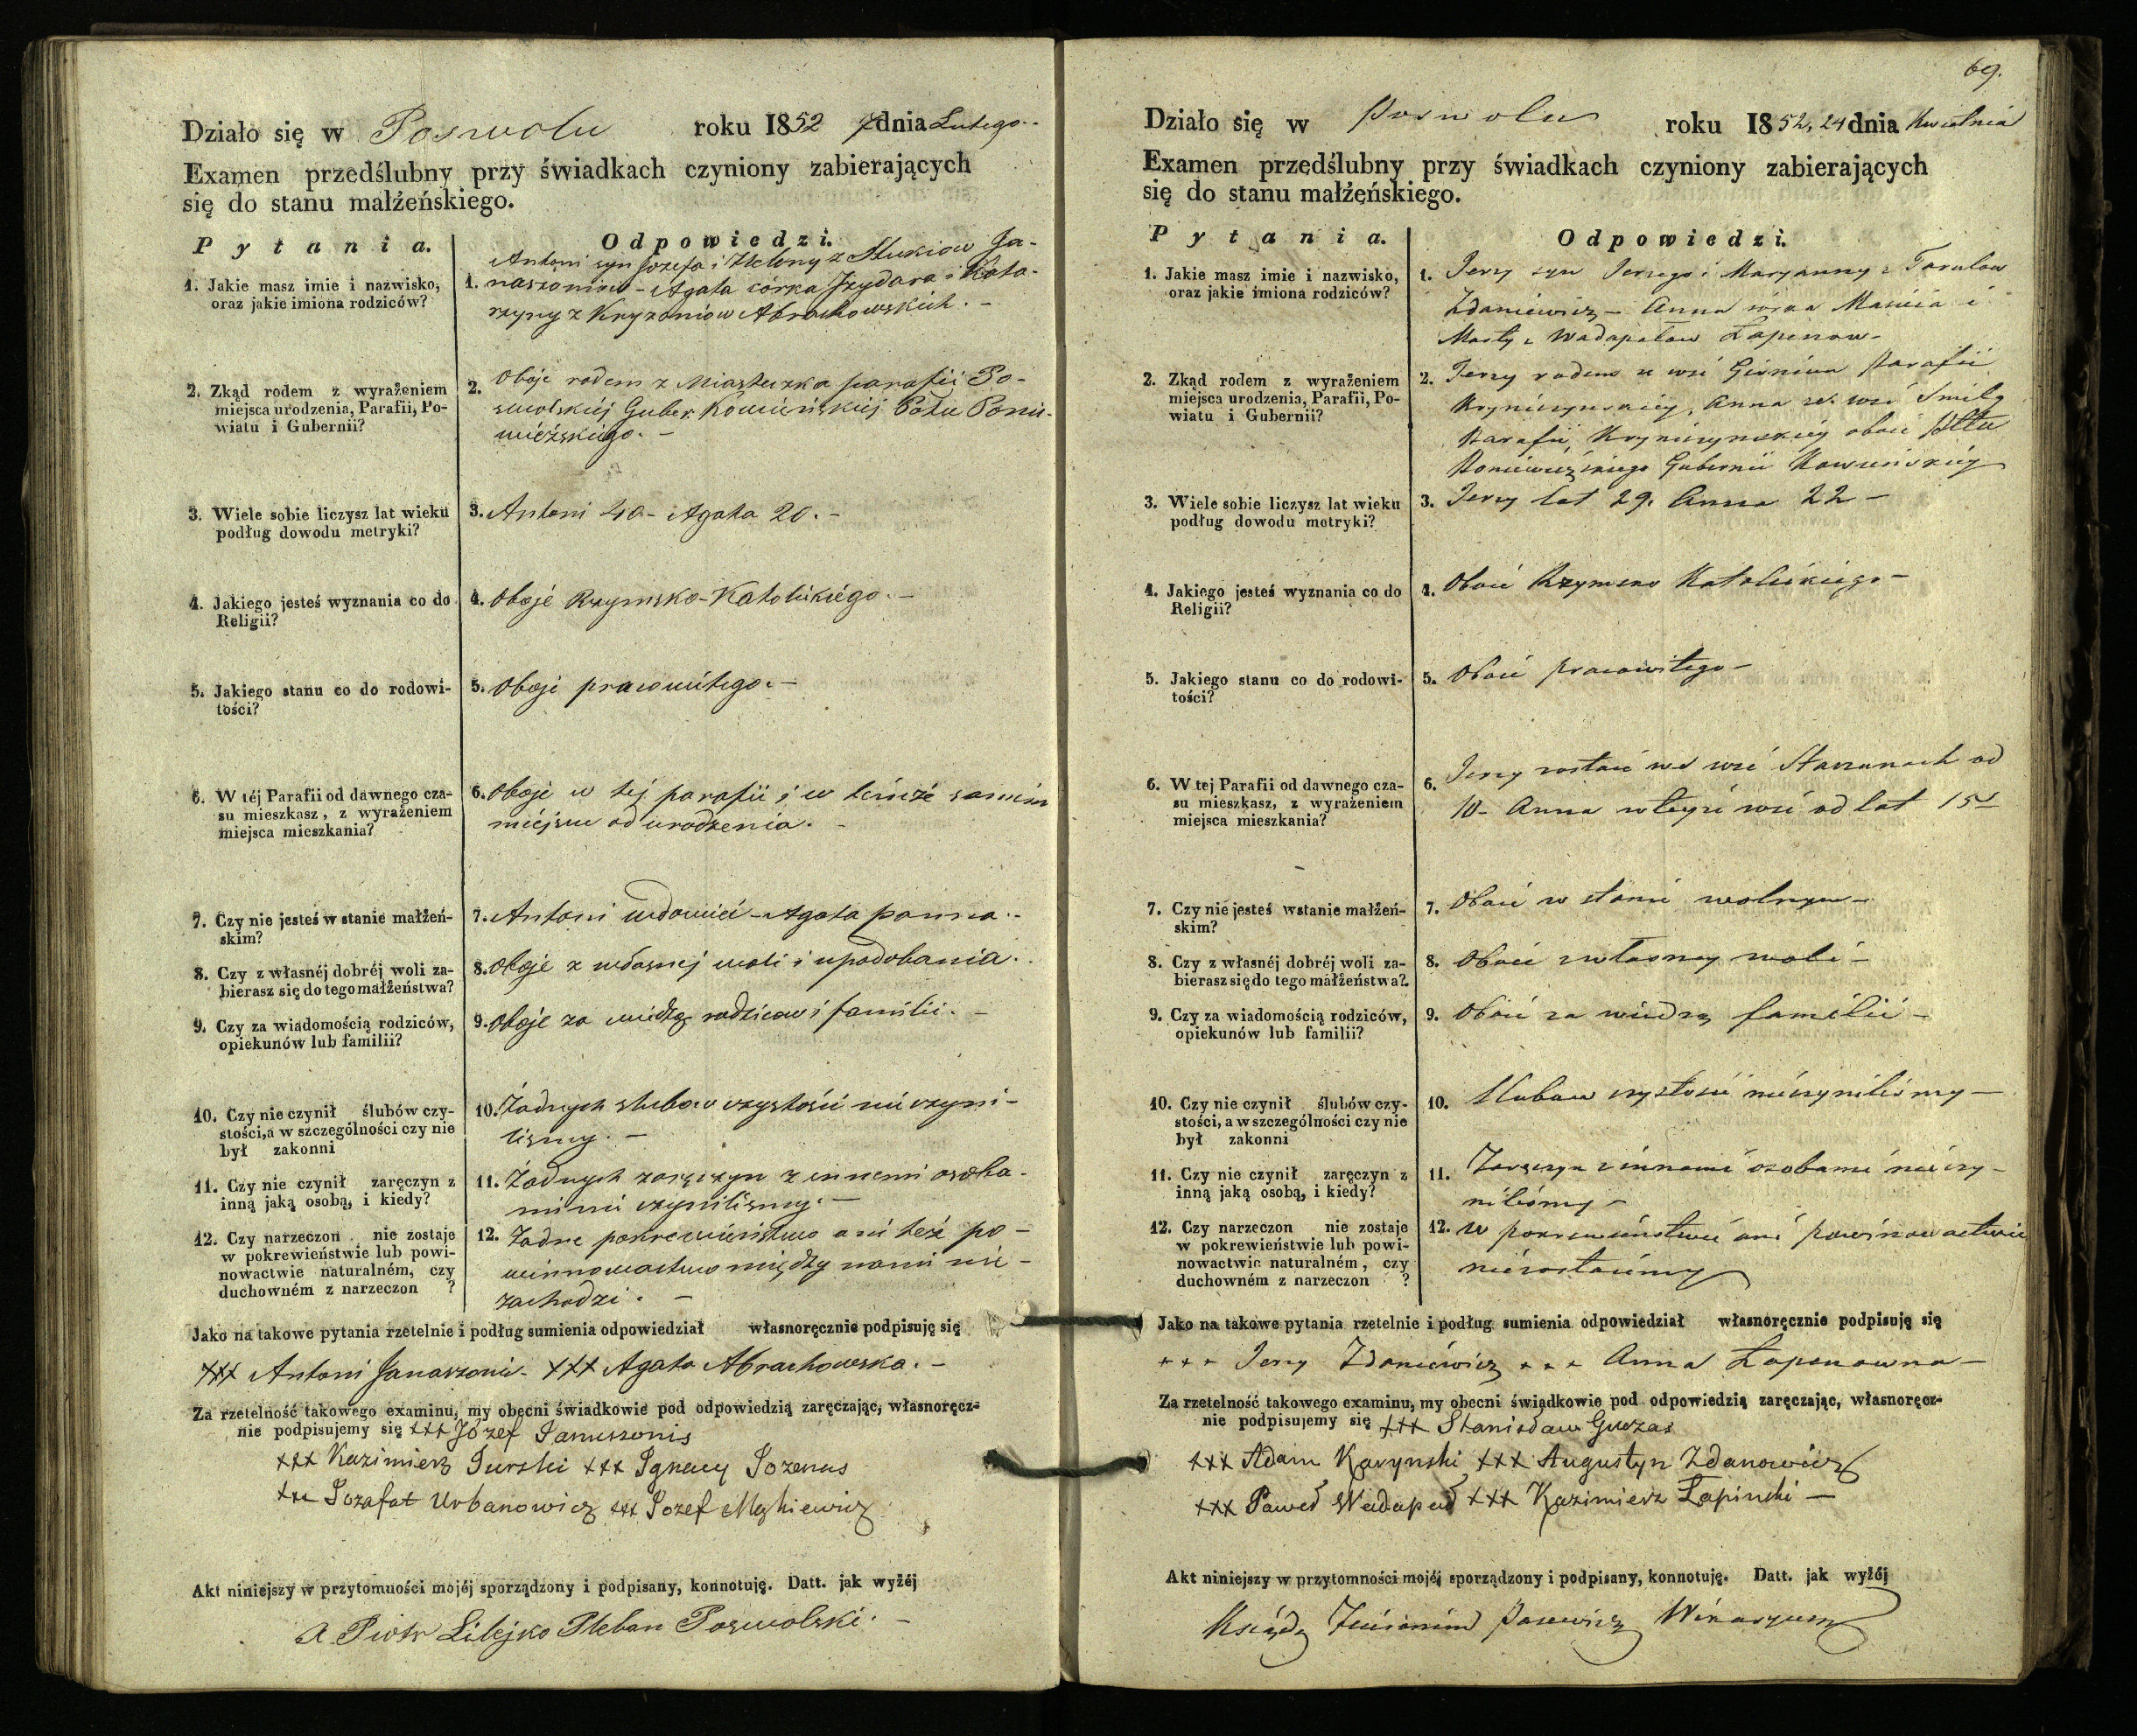 Działo się w Poswolu roku 1852 7 dnia Lutego.-
Examen przedślubny przy świadkach czyniony zabierających
się do stanu małżeńskiego.
Pytania.
Odpowiedzi.
1. Jakie masz imie i nazwisko,
oraz jakie imiona rodziców?
1. Antoni syn Jozefa i Heleny z Stukiow Ja-
naszoniow - Agata córka Jzydara i Kata-
rzyny z Kryzoniow Abrachowskich. -
2. Zkąd rodem z wyrażeniem
miejsca urodzenia, Parafii, Po-
wiatu i Gubernii?
2. Oboje rodem z Miasteczka parafii Po-
swolskiéj Guber. Kowieńskiéj Potu Ponie-
wiéżskiego. -
3. Wiele sobie liczysz lat wieku
podług dowodu metryki?
3. Antoni 40 - Agata 20. -
4. Jakiego jesteś wyznania co do
Religii?
4. Oboje Rzymsko-Katolickiégo. -
5. Jakiego stanu co do rodowi-
tości?
5. Oboje pracowitego. -
6. W téj Parafii od dawnego cza-
su mieszkasz, z wyrażeniem
miejsca mieszkania?
6. Oboje w tej parafii i w témże samém
miéjscu od urodzenia. -
7. Czy nie jesteś w stanie małżeń-
skim?
7. Antoni wdowiec - Agata panna. -
8. Czy z własnéj dobréj woli za-
bierasz się do tego małżeństwa?
8. Oboje z własnej woli i upodobania.
9. Czy za wiadomością rodziców,
opiekunów lub familii?
9. Oboje za wiedzą rodzicow i familii. -
10. Czy nie czynił ślubów czy-
stości, a w szczególności czy nie
był zakonni
10. Żadnych slubow czystości nie czyni-
lismy. -
11. Czy nie czynił zaręczyn z
inną jaką osobą, i kiedy?
11. Żadnych zaręczyn z innemi osoba-
mi nie czynilismy. -
12. Czy narzeczon nie zostaje
w pokrewieństwie lub powi-
nowactwie naturalném, czy
duchowném z narzeczon ?
12. Żadne pokrewieństwo ani też po-
winnowactwo między nami nie-
zachodzi. -
Jako na takowe pytania rzetelnie i podług sumienia odpowiedział własnoręcznie podpisuję się
+++ Antoni Janaszonis - +++ Agata Abrachowska. -
Za rzetelność takowego examinu, my obecni świadkowie pod odpowiedzią zaręczając, własnoręcz-
nie podpisujemy się +++ Józef Januszonis
+++ Kazimierz Turski +++ Jgnacy Jozenas
+++ Jozafat Urbanowicz +++ Jozef Mękiewicz
Akt niniejszy w przytomności mojéj sporządzony i podpisany, konnotuję. Datt. jak wyżéj
X. Piotr Lilejko Pleban Poswolski. -
69.
Działo się w Poswolu roku 1852, 24 dnia Kwietnia
Examen przedślubny przy świadkach czyniony zabierających
się do stanu małżeńskiego.
Pytania.
Odpowiedzi.
1. Jakie masz imie i nazwisko,
oraz jakie imiona rodziców?
1. Jerzy syn Jerzego i Maryanny z
Zdaniewicz - Anna córka Macieia i
Marty z Wadapałow Łapenow -
2. Zkąd rodem z wyrażeniem
miejsca urodzenia, Parafii, Po-
wiatu i Gubernii?
2. Jerzy rodem z wsi Parafii
Kryniczynskiéy, Anna ze wsi Smilg
Parafii Kryniczynskiéy oboie Pttu
Poniewieżskiego Gubernii Kowieńskiéy
3. Wiele sobie liczysz lat wieku
podług dowodu metryki?
3. Jerzy lat 29. Anna 22 -
4. Jakiego jesteś wyznania co do
Religii?
4. Oboie Rzymsko Katolickiego -
5. Jakiego stanu co do rodowi-
tości?
5. Oboie pracowitego -
6. W tej Parafii od dawnego cza-
su mieszkasz, z wyrażeniem
miejsca mieszkania?
6. Jerzy zostaie we wsi od
10 - Anna w teyże wsi od lat 15
7. Czy nie jesteś wstanie małżeń-
skim?
7. Oboie w stanie wolnym -
8. Czy z własnéj dobréj woli za-
bierasz się do tego małżeństwa?
8. Oboie z własney woli -
9. Czy za wiadomością rodziców,
opiekunów lub familii?
9. Oboie za wiedzą familii -
10. Czy nie czynił ślubów czy-
stości, a w szczególności czy nie
był zakonni
10. Slubow czystości nieczyniliśmy -
11. Czy nie czynił zaręczyn z
inną jaką osobą, i kiedy?
11. Zaręczyn z innemi osobami nieczy-
niliśmy -
12. Czy narzeczon nie zostaje
w pokrewieństwie lub powi-
nowactwie naturalném, czy
duchowném z narzeczon ?
12. W pokrewieństwie ani powinowactwie
niezostaiemy
Jako na takowe pytania rzetelnie i podług sumienia odpowiedział własnoręcznie podpisuję się
+++ Jerzy Zdaniéwicz +++ Anna Łapenowna -
Za rzetelność takowego examinu, my obecni świadkowie pod odpowiedzią zaręczając, własnoręcz-
nie podpisujemy się +++ Stanisław Guczas
+++ Adam Karynski +++ Augustyn Zdanowicz
+++ Paweł Wadapał +++ Kazimierz Łapinski -
Akt niniejszy w przytomności mojéj sporządzony i podpisany, konnotuję. Datt. jak wyżéj
Ksiądz Wikaryusz